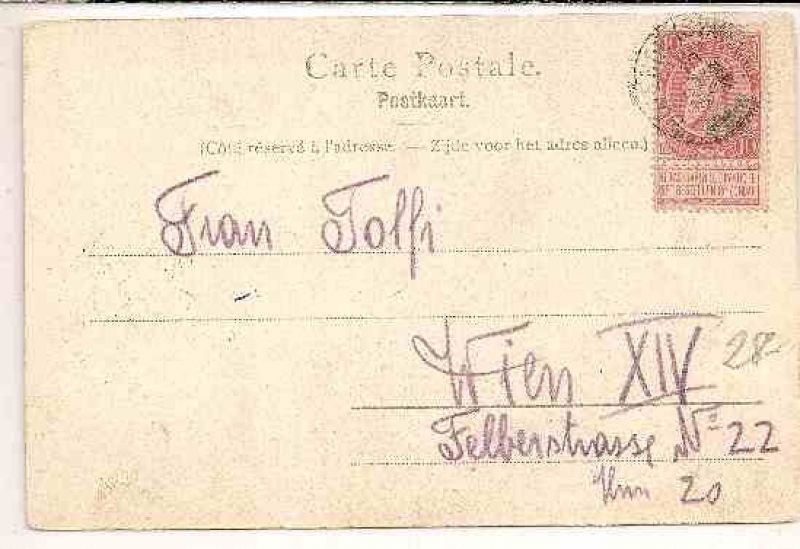 Carte Postale.
Postkaart.
(Côté réservé à l'adresse. — Zijde voor het adres alleen.)
10 10
Frau Tolfi
Wien XIV
28
Felberstrasse No 22
20